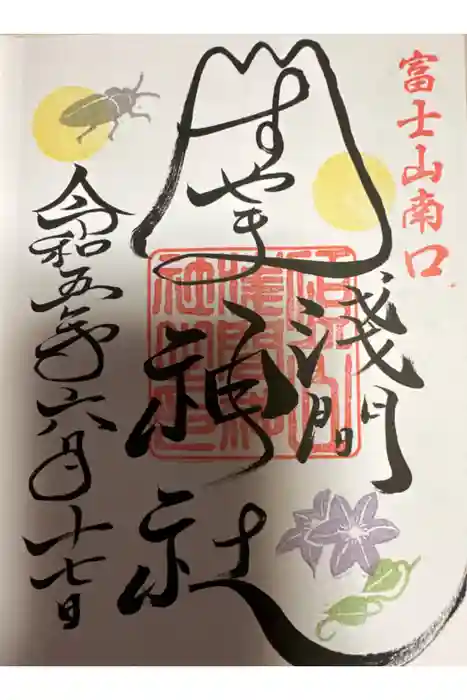 富士山南口
すやま
浅間
神社
令和五年六月十七日